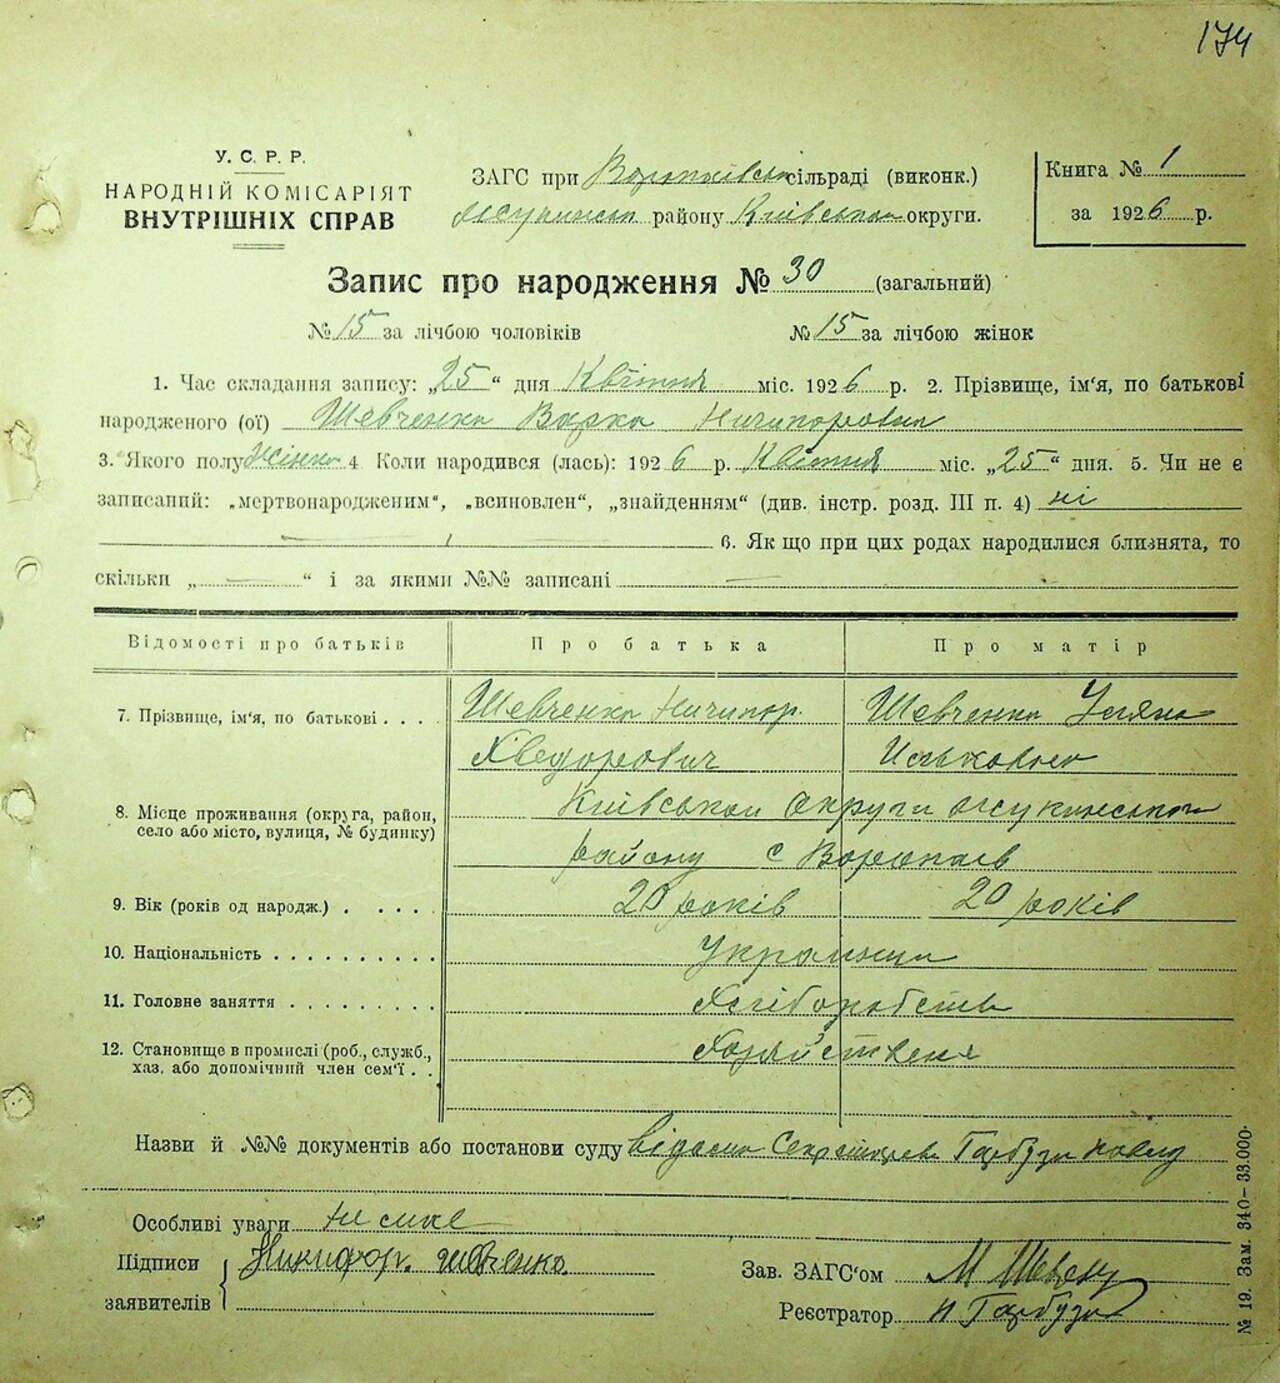 174
У. С. Р. Р.
НАРОДНІЙ КОМІСАРІЯТ
ВНУТРІШНІХ СПРАВ
ЗАГС при сільраді (виконк.)
району Київської округи.
Книга № 1
за 1926 р.
Запис про народження № 30 (загальний)
№ 15 за лічбою чоловіків № 15 за лічбою жінок
1. Час складання запису: „25“ дня Квітня міс. 1926 р. 2. Прізвище, ім'я, по батькові
народженого (ої) Шевченко Варка Ничипоровна
3. Якого полу 4. Коли народився (лась): 1926 р. Квітня міс. „25“ дня. 5. Чи не є
записаний: „мертвонародженим“, „всиновлен“, „знайденням“ (див. інстр. розд. III п. 4) ні
6. Як що при цих родах народилися близнята, то
скільки „ “ і за якими №№ записані
Відомості про батьків Про батька Про матір
7. Прізвище, ім'я, по батькові . . . . Шевченко Ничипор. Шевченко Уляна
Хведорович
8. Місце проживання (округа, район, село або місто, вулиця, № будинку) Київської округи
району с Вороньків
9. Вік (років од народж.) . . . . . 20 років 20 років
10. Національність . . . . . . . . . . Українци
11. Головне заняття . . . . . . . . . Хліборобств
12. Становище в промислі (роб., служб., хаз. або допомічний член сем'ї . .
Назви й №№ документів або постанови суду Гарбузи
Особливі уваги не має
Підписи заявителів Никифор. Шевченко.
Зав. ЗАГС'ом М Шевченко
Реєстратор П Гарбуза
№ 19. Зам. 340—33.000.